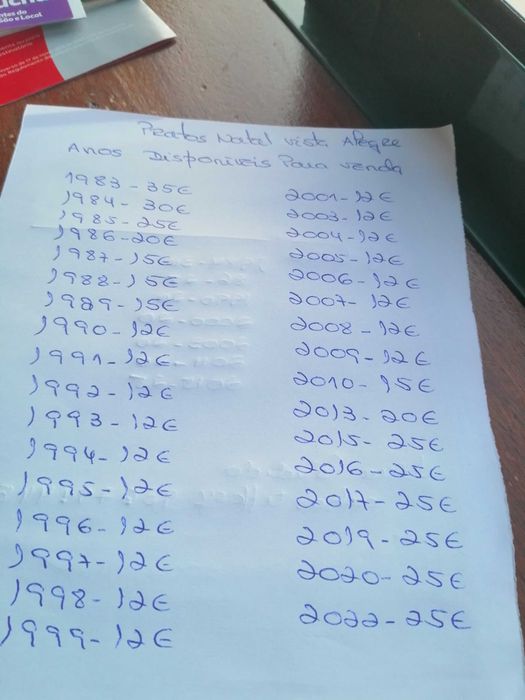 ntes do
são e Local
Pratos Natal Vista Alegre
Anos Disponiveis Para venda
1983 - 35€
1984 - 30€
1985 - 25€
1986 - 20€
1987 - 15€
1988 - 15€
1989 - 15€
1990 - 12€
1991 - 12€
1992 - 12€
1993 - 12€
1994 - 12€
1995 - 12€
1996 - 12€
1997 - 12€
1998 - 12€
1999 - 12€
2001 - 12€
2003 - 12€
2004 - 12€
2005 - 12€
2006 - 12€
2007 - 12€
2008 - 12€
2009 - 12€
2010 - 15€
2013 - 20€
2015 - 25€
2016 - 25€
2017 - 25€
2019 - 25€
2020 - 25€
2022 - 25€